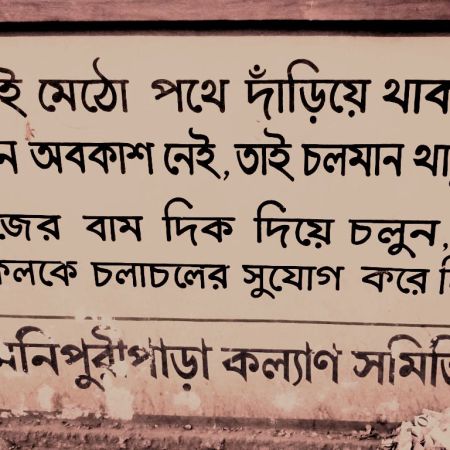 ই মেঠো পথে দাঁড়িয়ে থাব
ন অবকাশ নেই, তাই চলমান থা
জের বাম দিক দিয়ে চলুন,
কলকে চলাচলের সুযোগ করে দি
মনিপুরীপাড়া কল্যাণ সমিতি